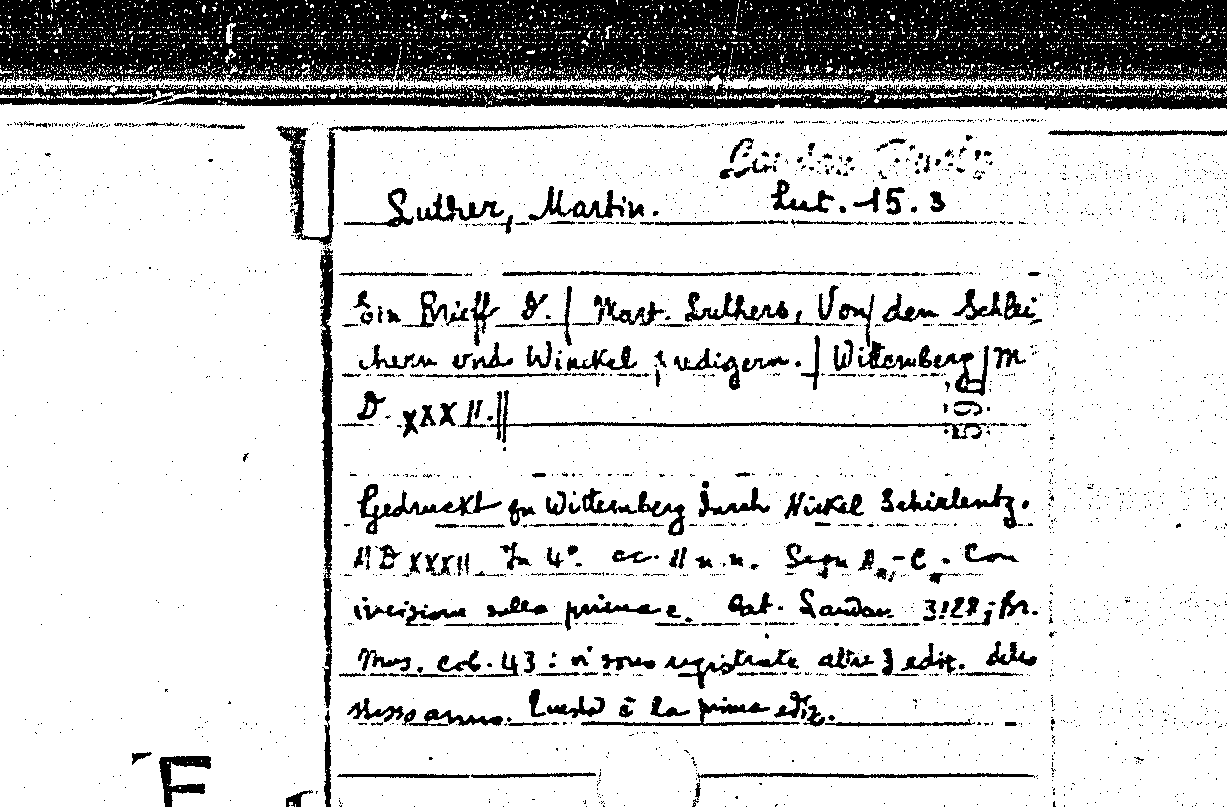 Luther, Martin. Lut. 15.3
Ein Brieff D. | Mart. Luthers, Von | dem Schlei
chern vnd Winckel predigern. | Wittemberg | M
D. XXXII. ||
Gedruckt zu Wittemberg durch Nickel Schirlentz.
MDXXXII. In 4°. cc. 11 n.n. Segn A - C. Con
incisione sulla prima c. Cat. 3128; Br.
Mus. col. 43: vi sono registrate altre 3 edit. dello
stesso anno. Questa è la prima ediz.
E